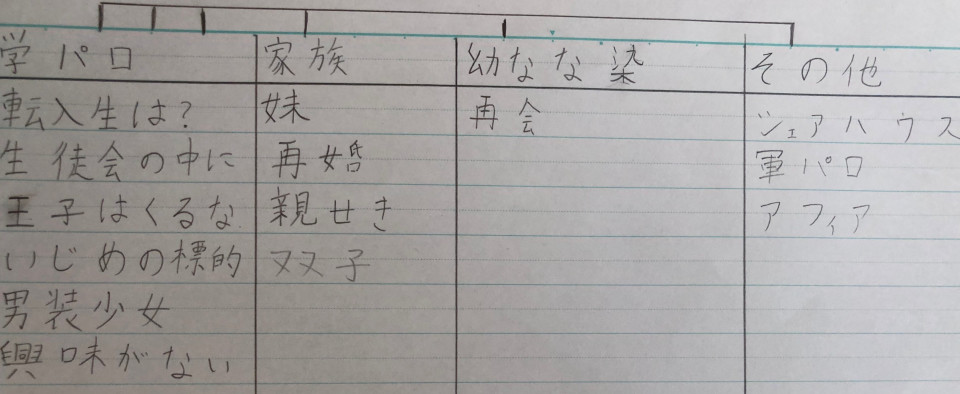 学パロ 家族 幼なな染 その他
転入生は? 妹 再会 シェアハウス
生徒会の中に 再婚 軍パロ
王子はくるな 親せき アフィア
いじめの標的 双子
男装少女
興味がない